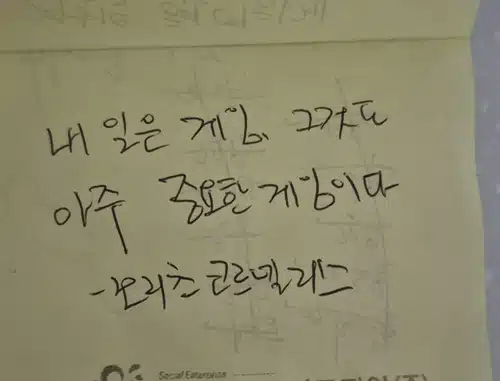 내 일은 게임, 그것도
아주 중요한 게임이다
-모리츠 코르넬리스
Social Enterprise